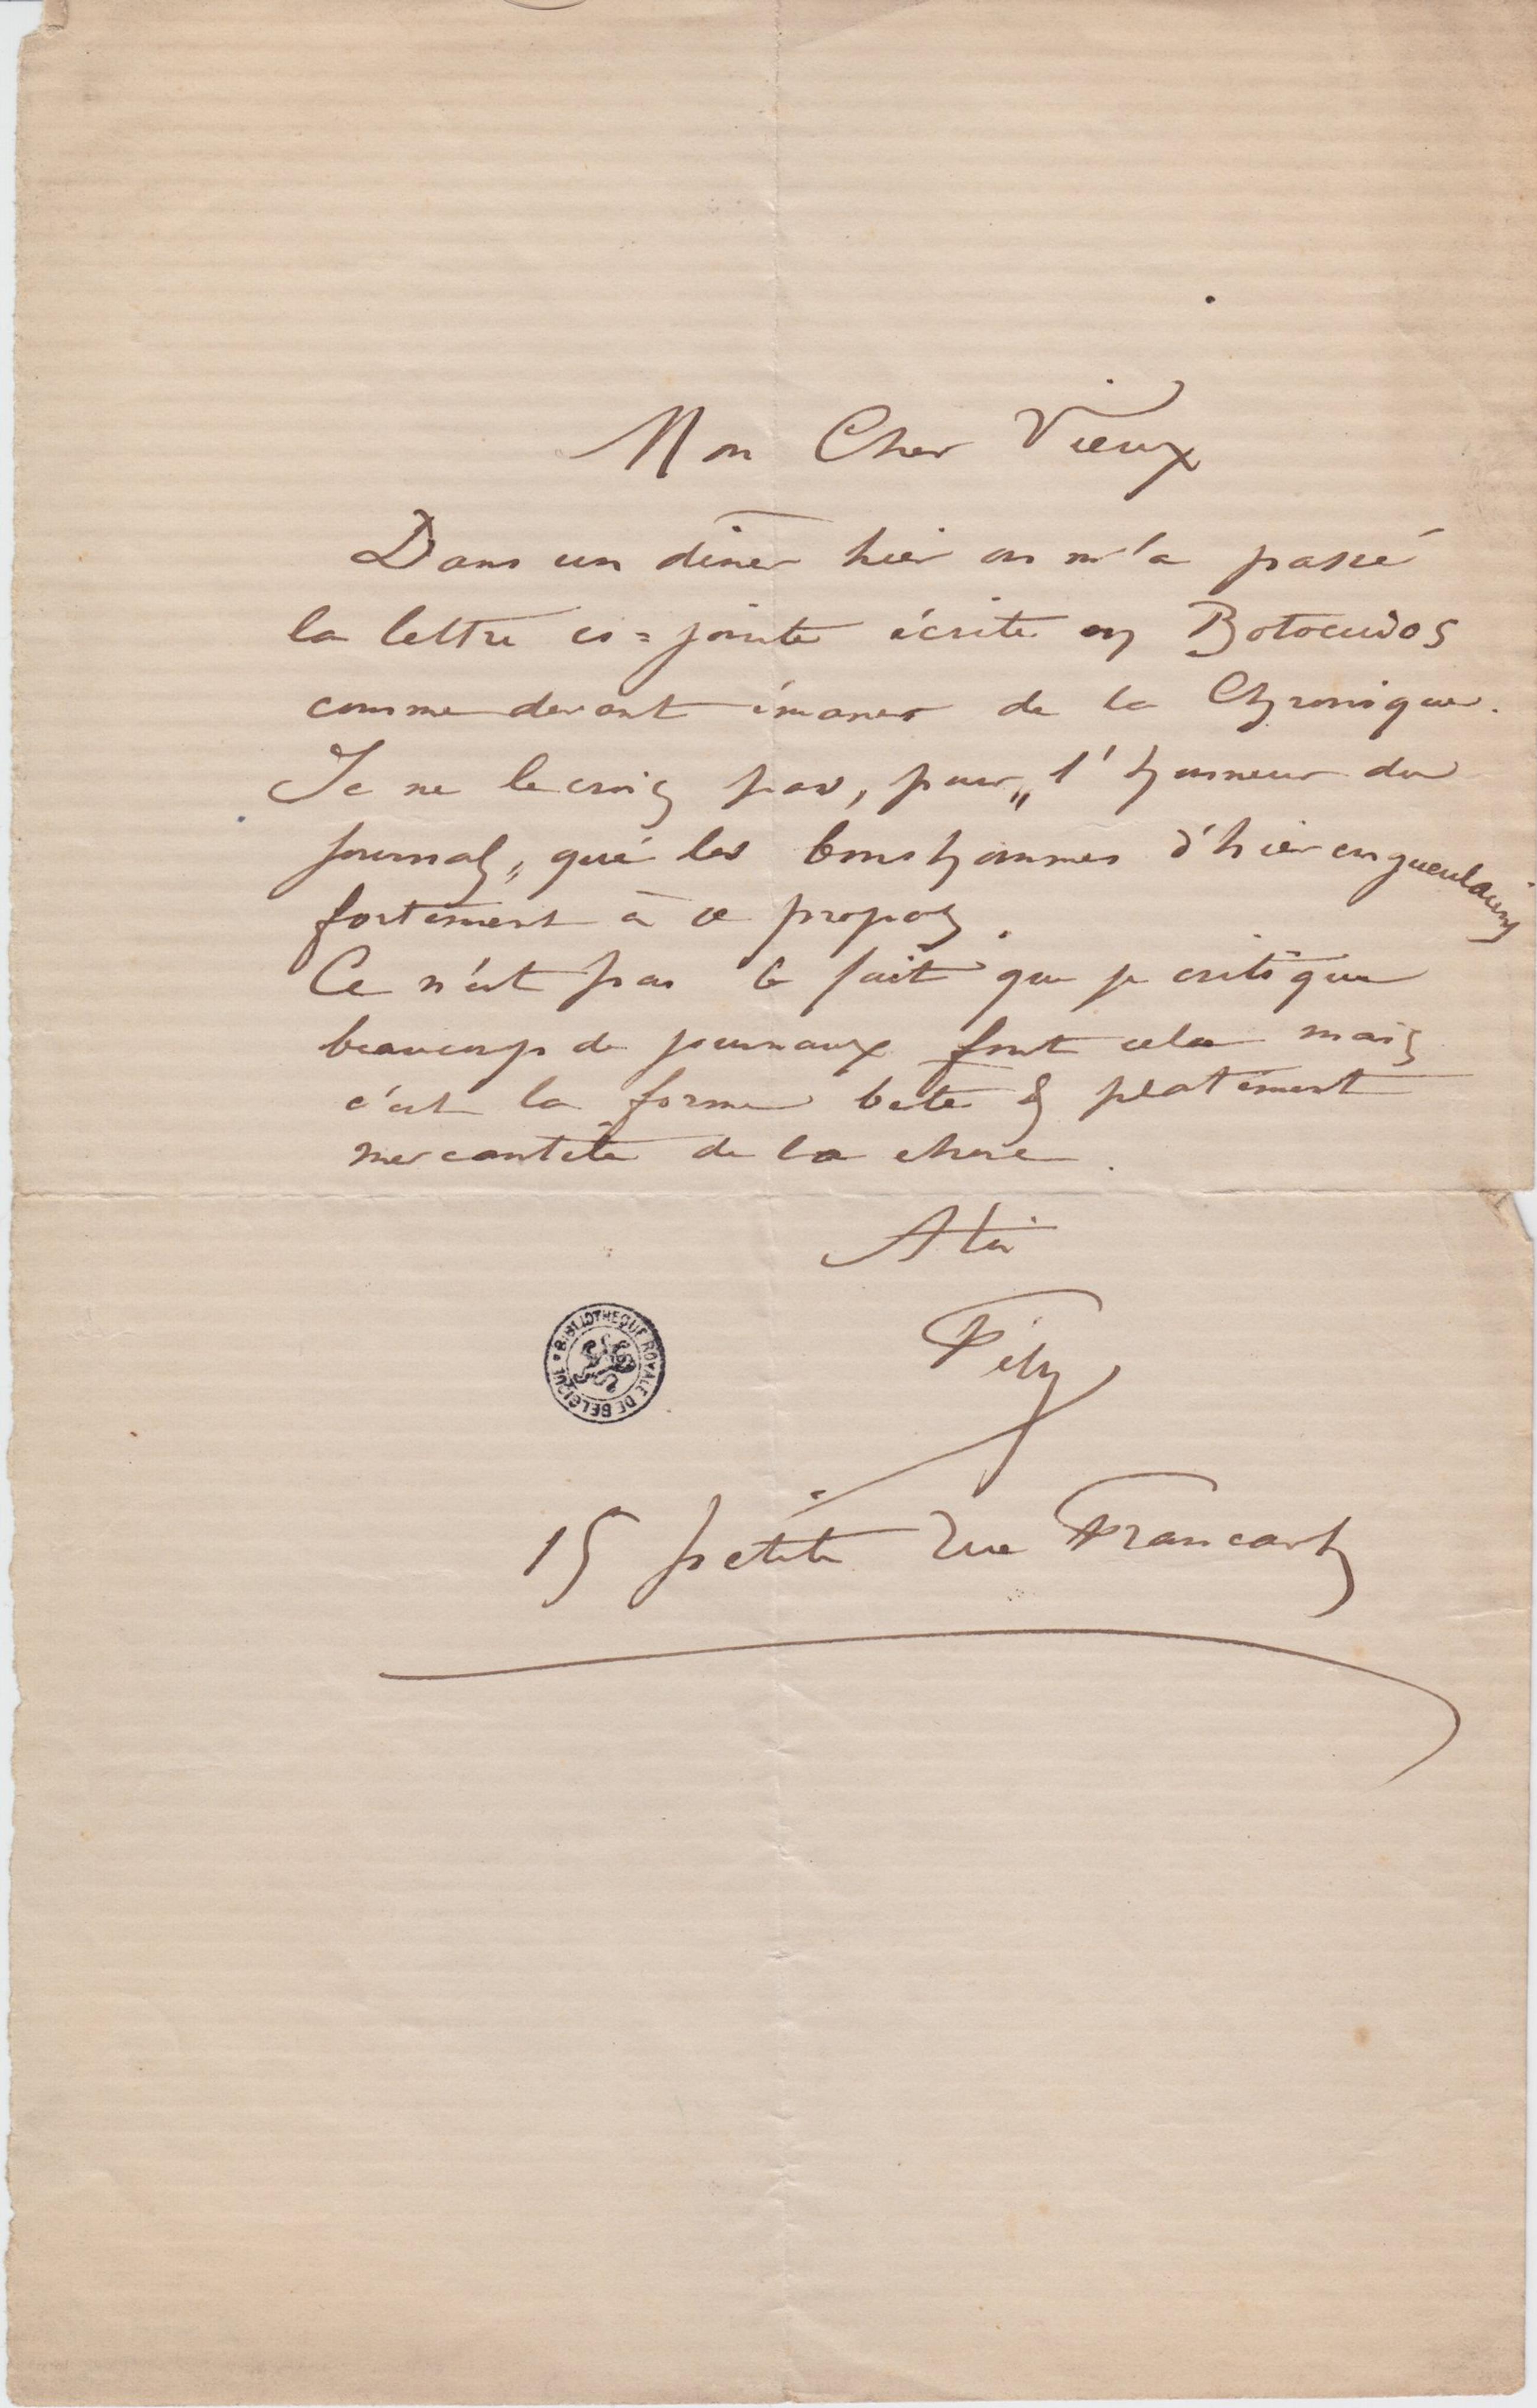 Mon Cher Vieux
Dans un dîner hier on m'a passé
la lettre ci=jointe écrite en Botocudos
comme devant émaner de la Chronique.
Je ne le crois pas, pour „l'honneur du
journal„ que les bonshommes d'hier engueulaient
fortement à ce propos.
Ce n'est pas le fait que je critique
beaucoup de journaux font cela mais
c'est la forme bête & platement
mercantile de la chose.
A toi
Fély
15 petite rue Francart
BIBLIOTHEQUE ROYALE DE BELGIQUE